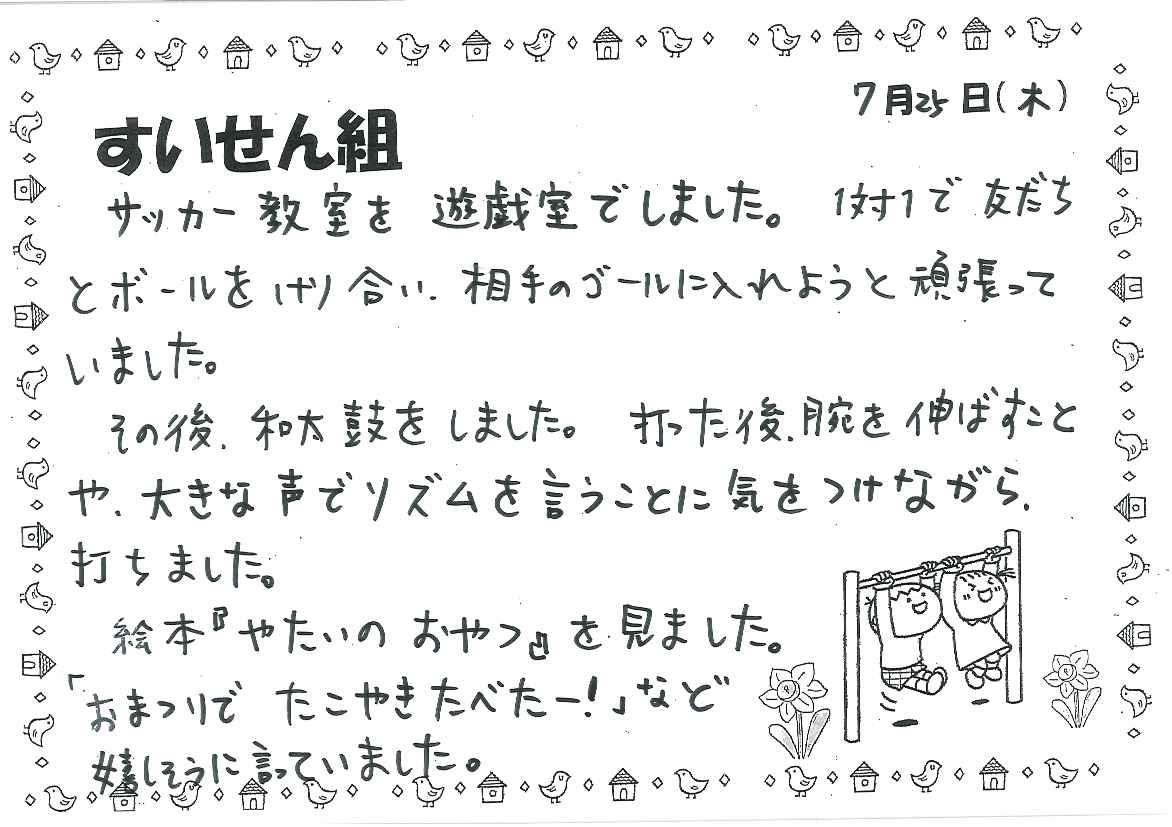 7月25日(木)
すいせん組
サッカー教室を遊戯室でしました。1対1で友だち
とボールをけり合い、相手のゴールに入れようと頑張って
いました。
その後、和太鼓をしました。打った後、腕を伸ばすこと
や、大きな声でリズムを言うことに気をつけながら、
打ちました。
絵本『やたいのおやつ』を見ました。
「おまつりでたこやきたべたー!」など
嬉しそうに言っていました。